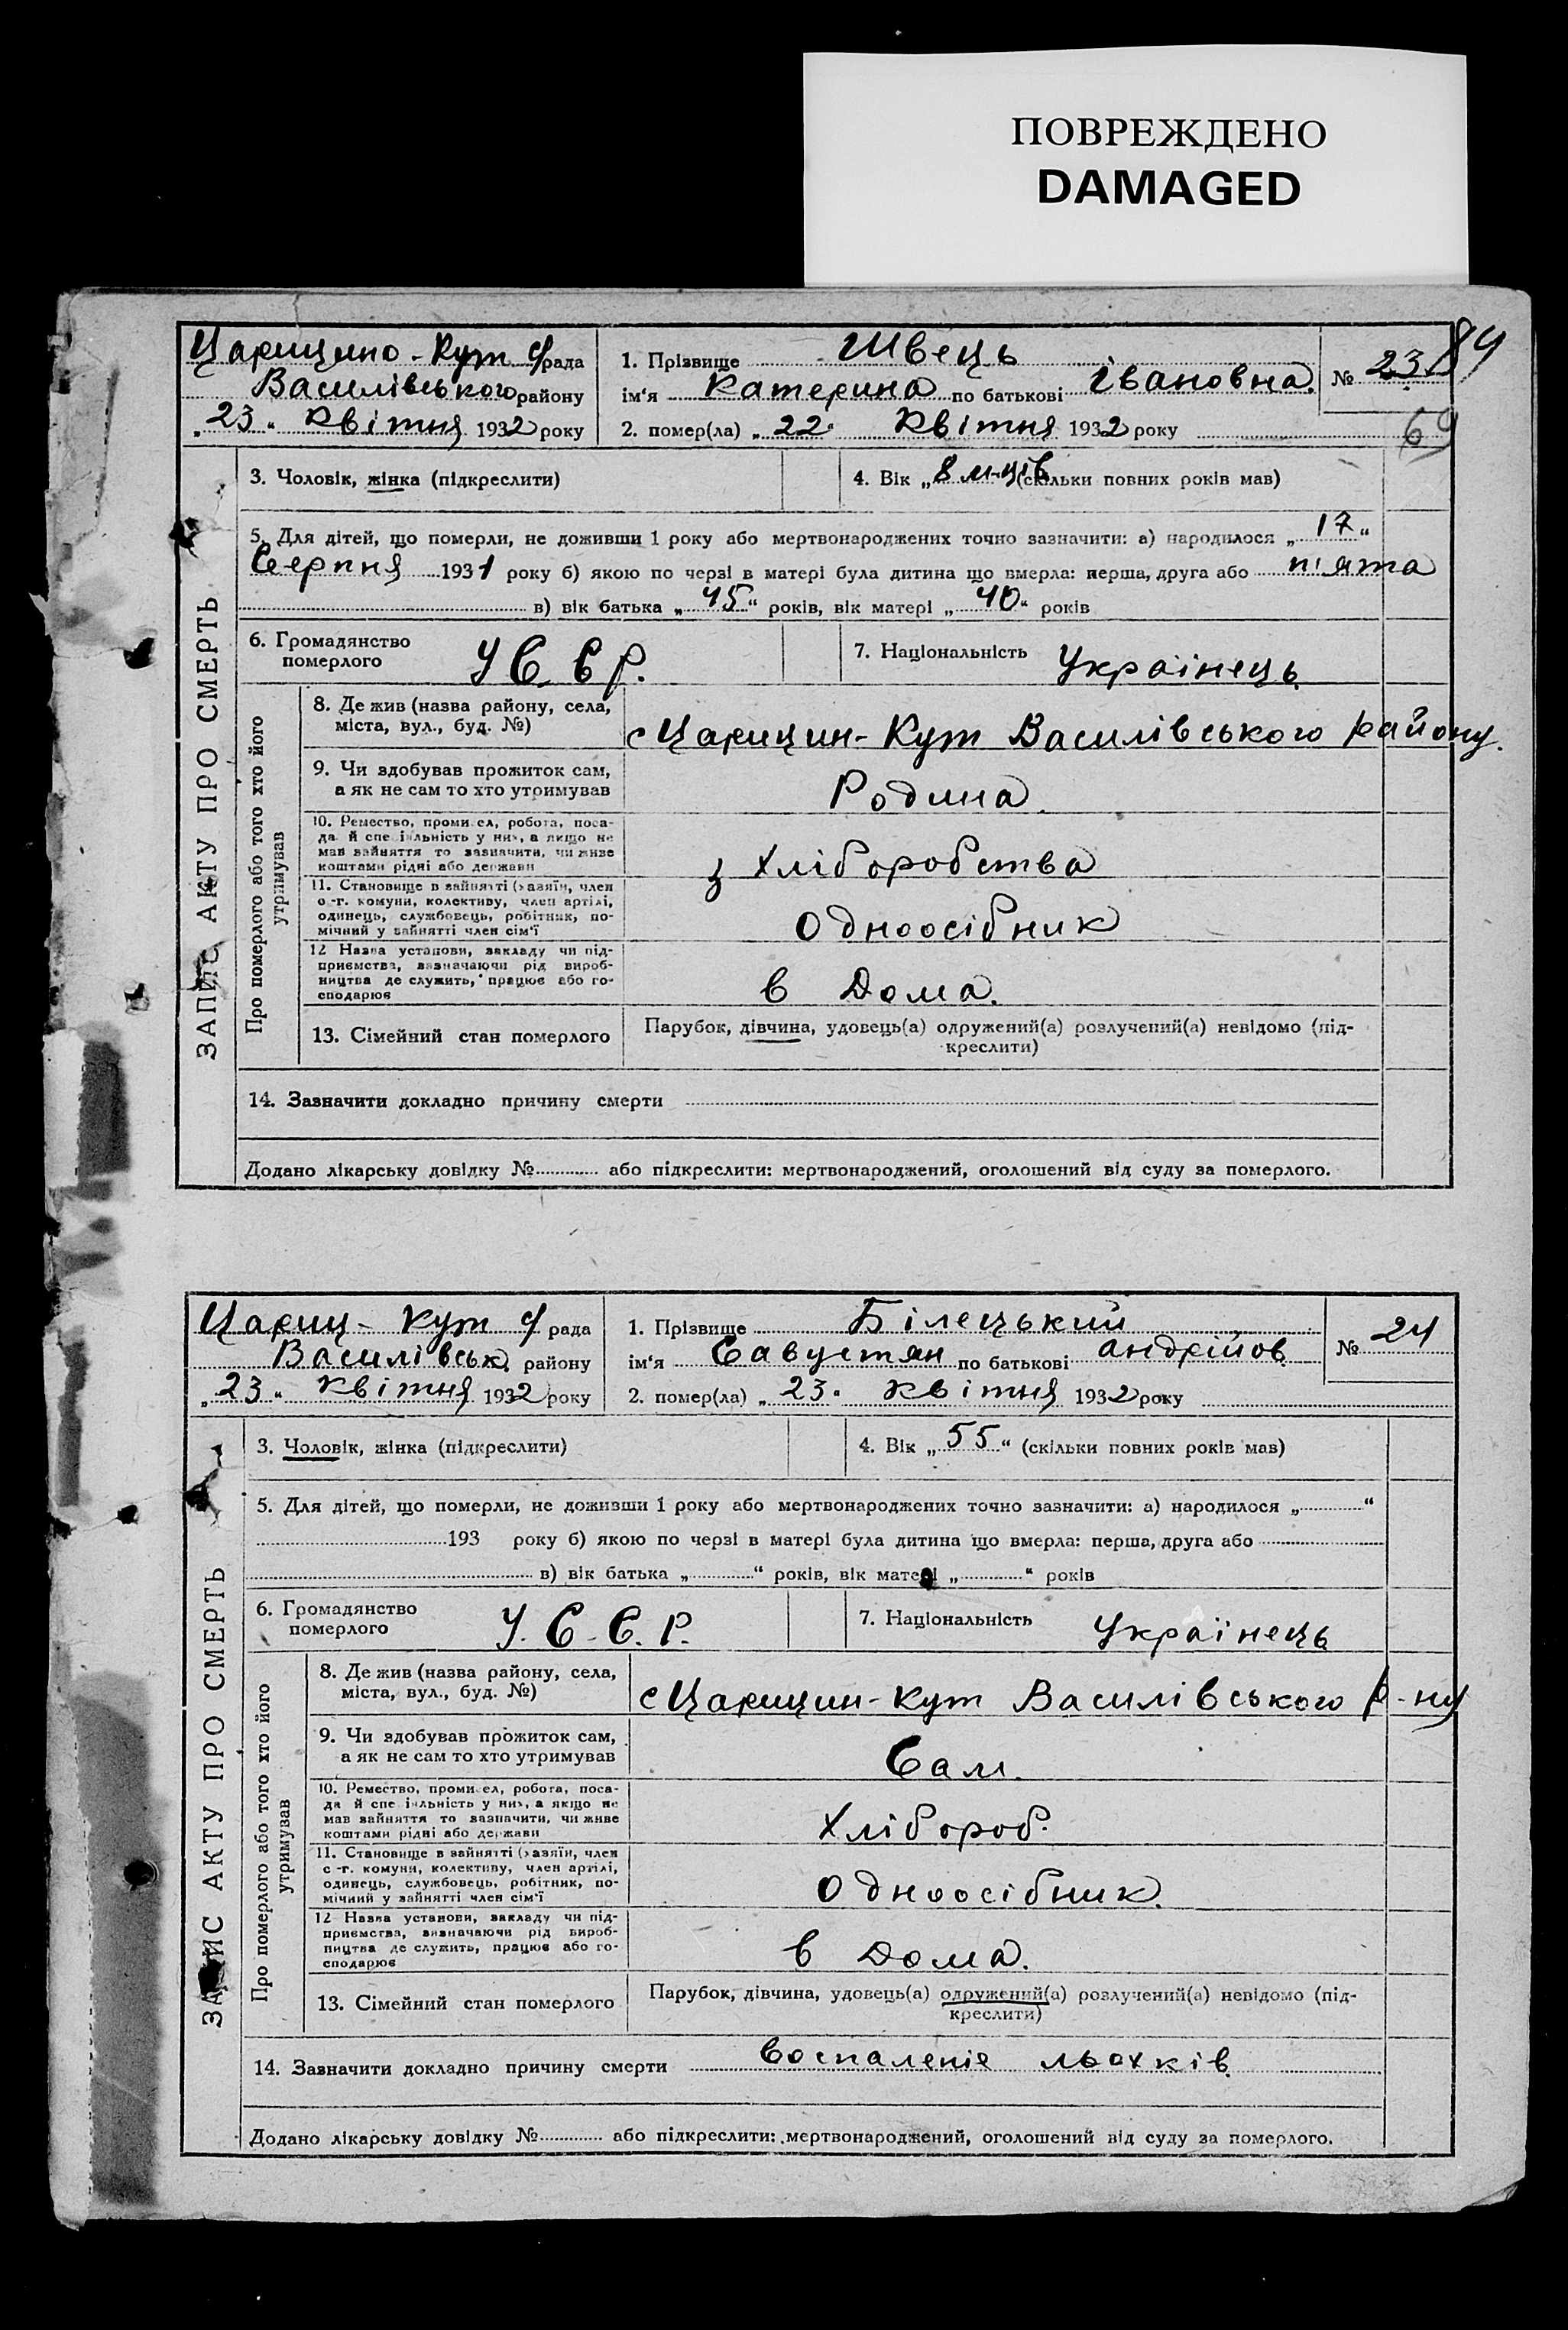 ПОВРЕЖДЕНО
DAMAGED
Царицино-Кут с/рада
Василівського району
„23“ Квітня 1932 року
1. Прізвище Швець
ім‘я Катерина по батькові Івановна.
2. помер(ла) „22“ Квітня 1932 року
№ 23
84
69
ЗАПИС АКТУ ПРО СМЕРТЬ
3. Чоловік, жінка (підкреслити)
4. Вік „8 м-ців (скільки повних років мав)
5. Для дітей, що померли, не доживши 1 року або мертвонароджених точно зазначити: а) народилося „17“
Серпня 1931 року б) якою по черзі в матері була дитина що вмерла: перша, друга або п'ята
в) вік батька „45“ років, вік матері „40“ років
6. Громадянство
померлого
У С. С Р.
7. Національність Українець
Про померлого або того хто його
утримував
8. Де жив (назва району, села,
міста, вул., буд. №)
с Царицин-Кут Василівського району.
9. Чи здобував прожиток сам,
а як не сам то хто утримував
Родина
10. Ремество, промисел, робота, поса-
да й спеціяльність у них, а якщо не
мав зайняття то зазначити, чи живе
коштами рідні або держави
з Хліборобства
11. Становище в зайнятті (хазяїн, член
с.-г. комуни, колективу, член артілі,
одинець, службовець, робітник, по-
мічний у зайнятті член сім'ї
Одноосібник
12 Назва установи, закладу чи під-
приємства, зазначаючи рід вироб-
ництва де служить, працює або го-
сподарює
в Дома.
13. Сімейний стан померлого
Парубок, дівчина, удовець(а) одружений(а) розлучений(а) невідомо (під-
креслити)
14. Зазначити докладно причину смерти
Додано лікарську довідку № або підкреслити: мертвонароджений, оголошений від суду за померлого.
Цариц-Кут с/рада
Василівськ. району
„23“ Квітня 1932 року
1. Прізвище Білецький
ім‘я Савустян по батькові Андрійов
2. помер(ла) „23“ Квітня 1932 року
№ 24
ЗАПИС АКТУ ПРО СМЕРТЬ
3. Чоловік, жінка (підкреслити)
4. Вік „55“ (скільки повних років мав)
5. Для дітей, що померли, не доживши 1 року або мертвонароджених точно зазначити: а) народилося „“
193 року б) якою по черзі в матері була дитина що вмерла: перша, друга або
в) вік батька „“ років, вік матері „“ років
6. Громадянство
померлого
У. С. С. Р.
7. Національність Українець
Про померлого або того хто його
утримував
8. Де жив (назва району, села,
міста, вул., буд. №)
с Царицин-Кут Василівського р-ну
9. Чи здобував прожиток сам,
а як не сам то хто утримував
Сам.
10. Ремество, промисел, робота, поса-
да й спеціяльність у них, а якщо не
мав зайняття то зазначити, чи живе
коштами рідні або держави
Хлібороб.
11. Становище в зайнятті (хазяїн, член
с.-г. комуни, колективу, член артілі,
одинець, службовець, робітник, по-
мічний у зайнятті член сім'ї
Одноосібник.
12 Назва установи, закладу чи під-
приємства, зазначаючи рід вироб-
ництва де служить, працює або го-
сподарює
в Дома.
13. Сімейний стан померлого
Парубок, дівчина, удовець(а) одружений(а) розлучений(а) невідомо (під-
креслити)
14. Зазначити докладно причину смерти Воспаленіє льохків.
Додано лікарську довідку № або підкреслити: мертвонароджений, оголошений від суду за померлого.